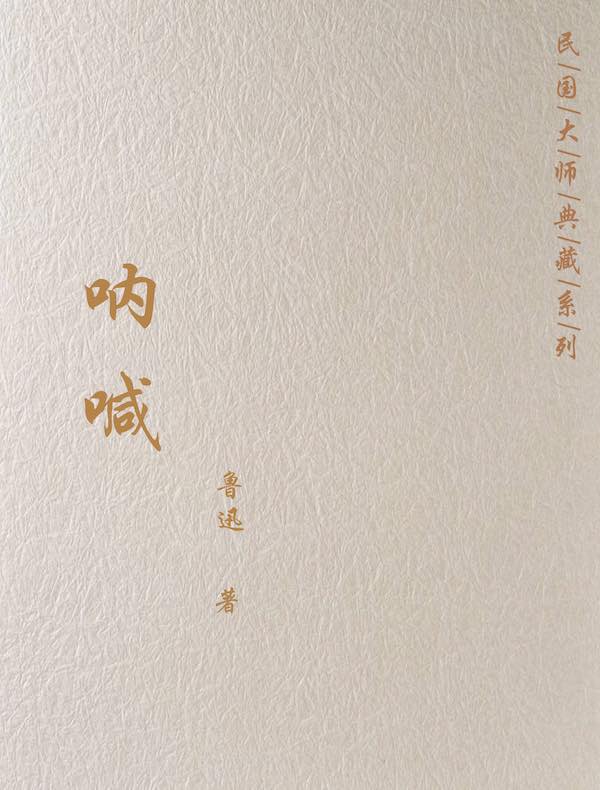 民/国/大/师/典/藏/系/列
呐喊
鲁迅 著